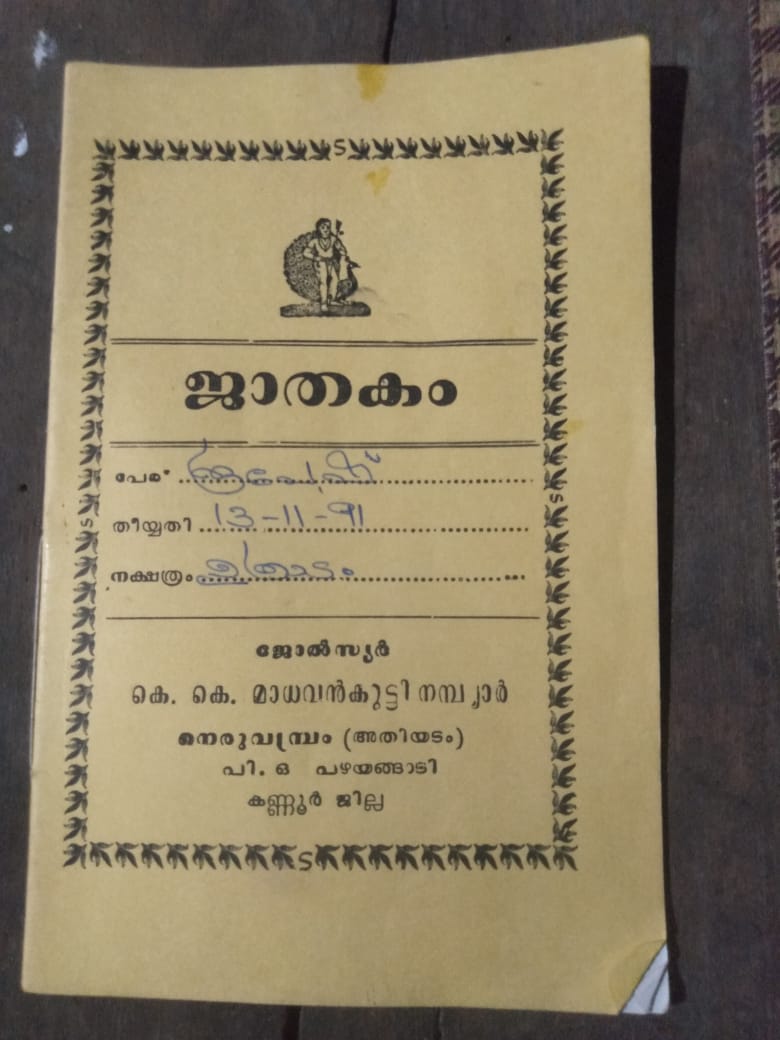 ജാതകം
പേര്
തീയ്യതി 13-11-91
നക്ഷത്രം ഉത്രാടം
ജ്യോൽസ്യർ
കെ. കെ. മാധവൻകുട്ടി നമ്പ്യാർ
നെരുവമ്പ്രം (അതിയടം)
പി. ഒ പഴയങ്ങാടി
കണ്ണൂർ ജില്ല